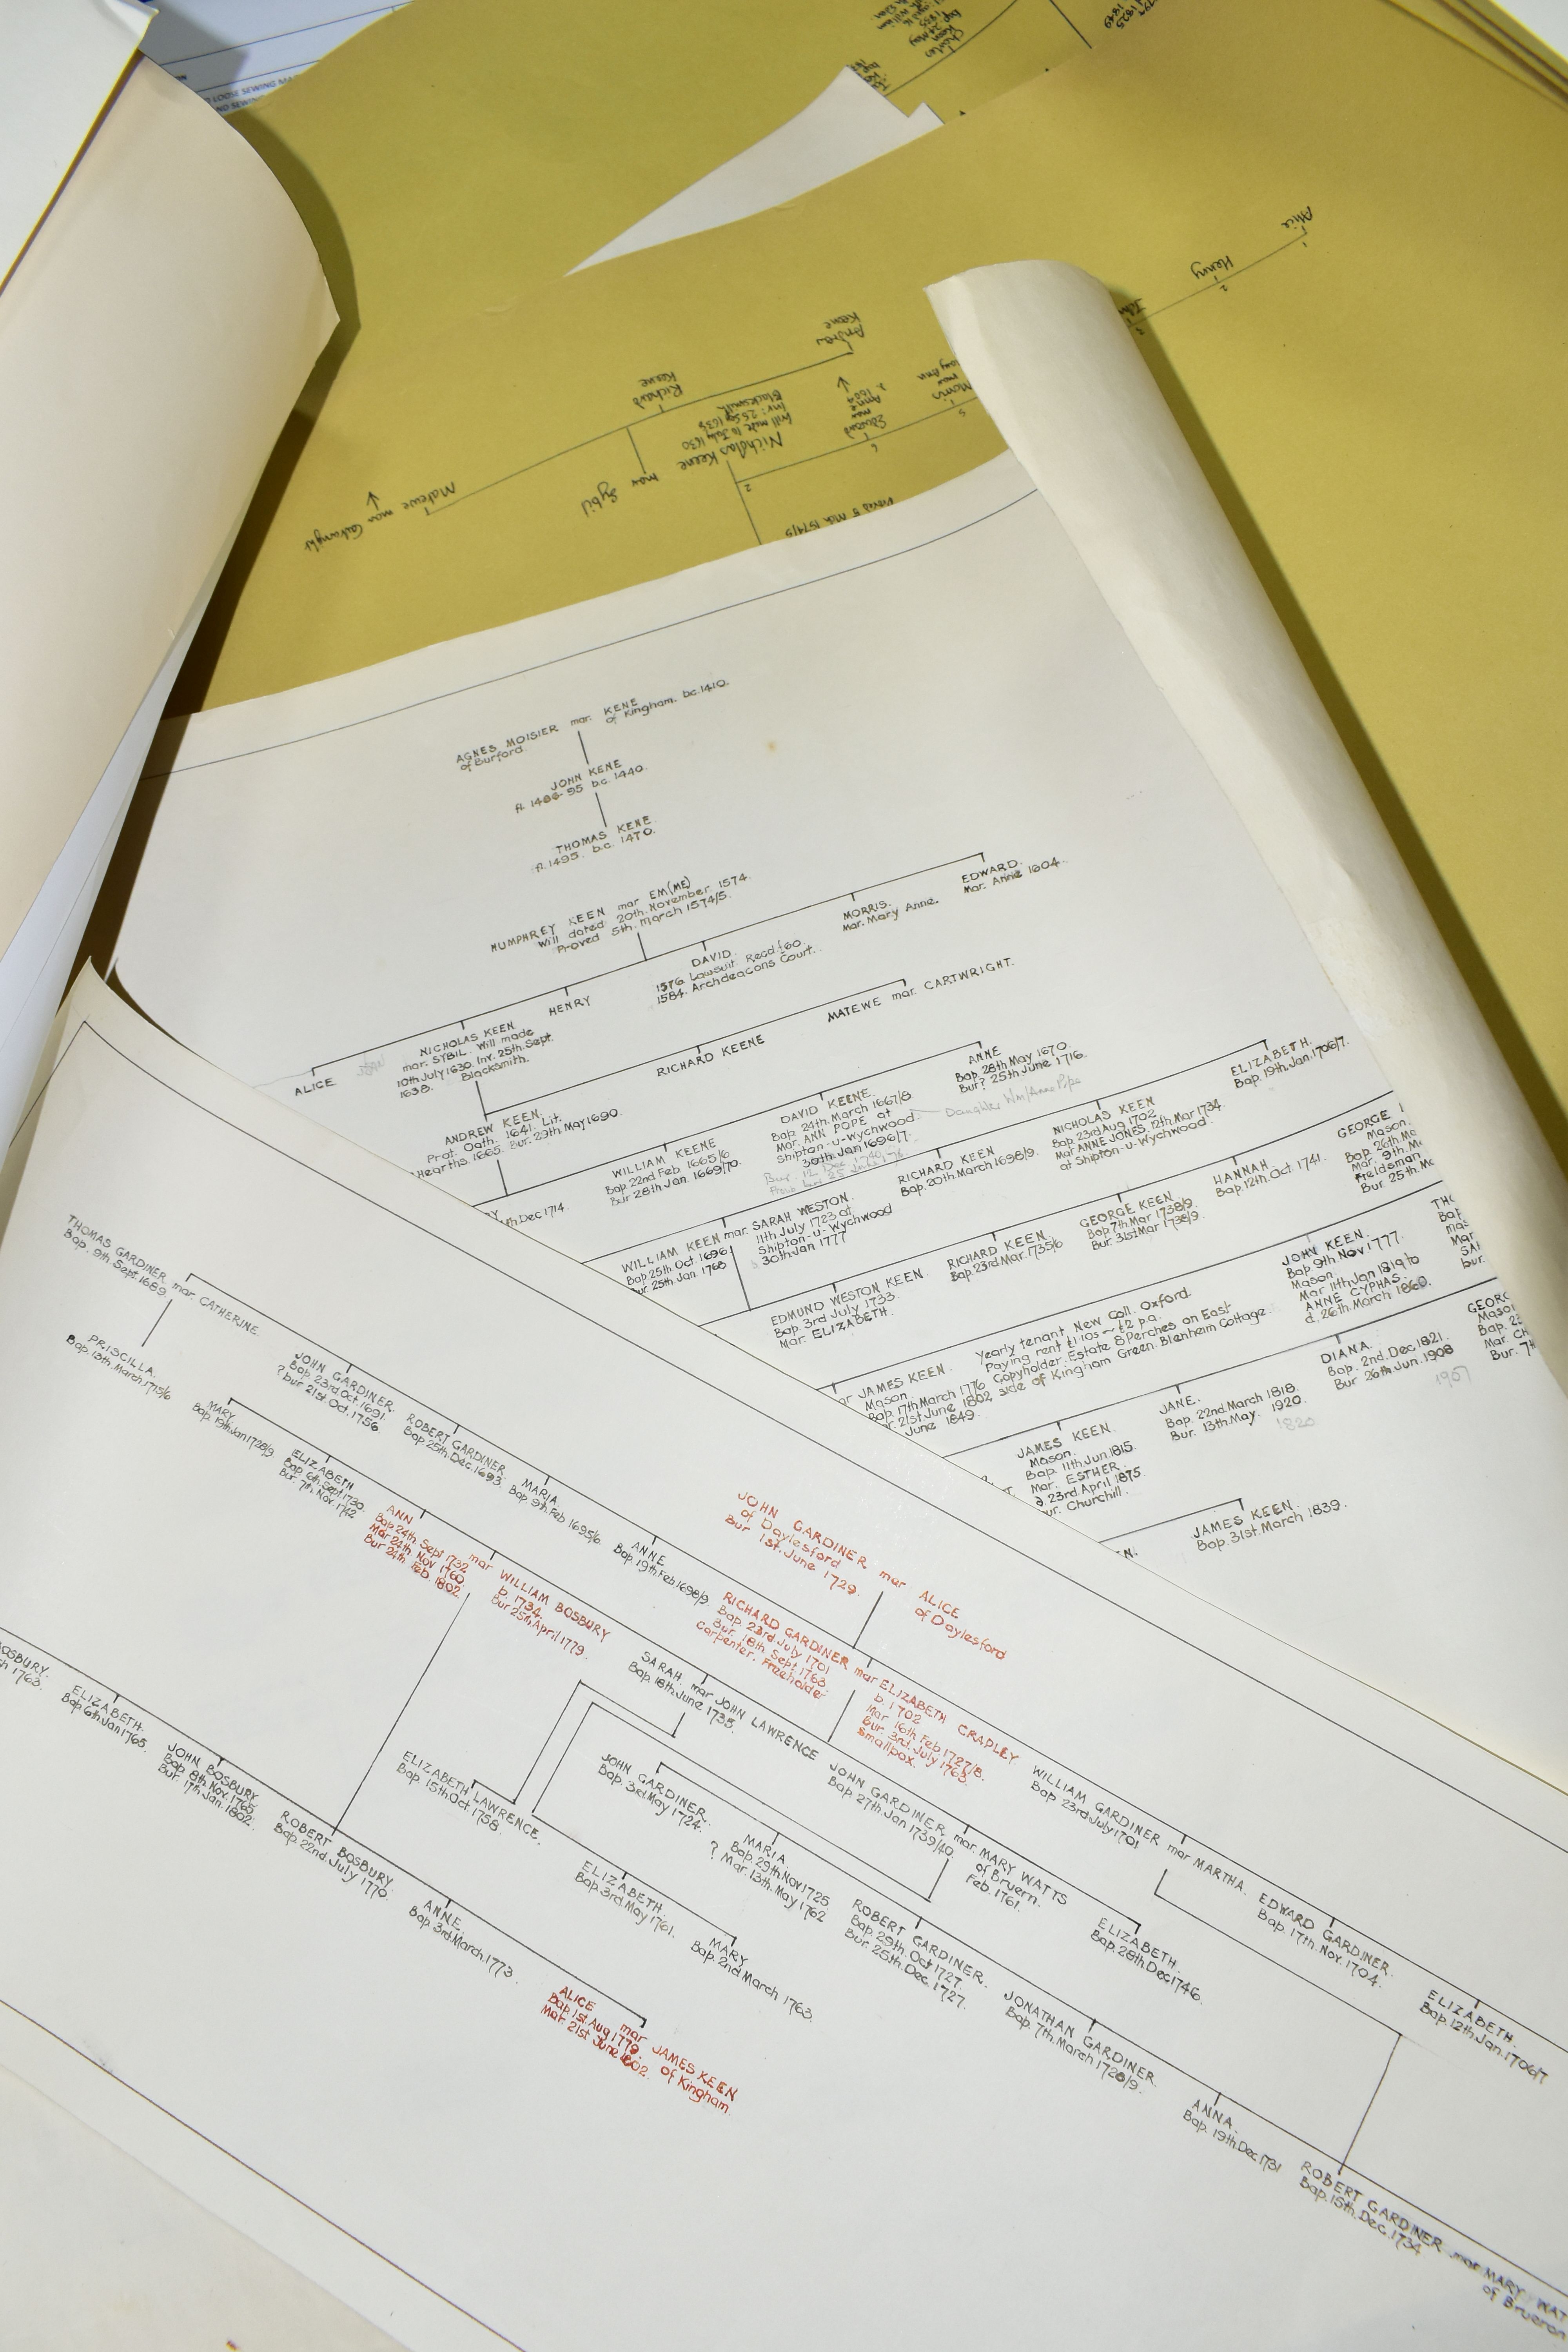 LOOSE SEWING
Alice
Henry
Andrew
Keene
Richard
Keene
Matewe mar Cartwright
Nicholas Keene mar Sybil
Will made 10 July 1630
Inv: 25 Sep 1638
Blacksmith
Edward
mar
Anne
Morris
mar
AGNES MOISIER mar. KENE
of Burford of Kingham. bc.1410.
JOHN KENE
b.c. 1440.
THOMAS KENE.
fl. 1495. b.c. 1470.
HUMPHREY KEEN mar EM(ME)
Will dated 20th. November 1574.
Proved 5th. March 1574/5.
ALICE
NICHOLAS KEEN
mar. SYBIL. Will made
10th July 1630. Inv. 25th. Sept.
1638. Blacksmith.
HENRY
DAVID.
1576. Lawsuit. Recd. £60.
1584. Archdeacons Court.
MORRIS.
Mar. Mary Anne.
EDWARD.
Mar. Anne 1604.
ANDREW KEEN.
Prot. Oath. 1641. Lit.
Hearths. 1665. Bur. 29th May 1690.
RICHARD KEENE
MATEWE mar. CARTWRIGHT.
Dec 1714.
WILLIAM KEENE
Bap 22nd Feb. 1665/6
Bur 28th Jan. 1669/70.
DAVID KEENE.
Bap 24th. March 1667/8.
Mar. ANN POPE at
Shipton-u-Wychwood.
30th Jan 1696/7.
Daughter Wm/Anne Pope
ANNE
Bap. 28th May 1670.
Bur? 25th June 1716.
WILLIAM KEEN mar. SARAH WESTON.
Bap. 25th Oct. 1696.
Bur. 25th Jan. 1768
11th July 1723 at
Shipton-u-Wychwood
30th Jan 1777
RICHARD KEEN
Bap. 20th March 1698/9.
NICHOLAS KEEN
Bap 23rd Aug 1702.
Mar ANNE JONES, 12th. Mar 1734.
at Shipton-u-Wychwood.
ELIZABETH.
Bap. 19th. Jan. 1706/7.
EDMUND WESTON KEEN.
Bap. 3rd July 1733.
Mar. ELIZABETH.
RICHARD KEEN.
Bap. 23rd. Mar. 1735/6
GEORGE KEEN.
Bap 7th Mar 1738/9.
Bur. 31st Mar 1738/9.
HANNAH.
Bap. 12th. Oct. 1741.
GEORGE
Mason.
Bap. 26th
Mar. 9th.
Fieldsman
Bur. 25th
JAMES KEEN.
Mason.
Bap. 17th March 1776
21st June 1802
June 1849.
Yearly tenant New Coll. Oxford.
Paying rent £1.10s - £2 p.a.
Copyholder. Estate 8 Perches on East
side of Kingham Green. Blenheim Cottage.
JOHN KEEN.
Bap. 9th. Nov 1777.
Mason.
Mar 11th Jan 1819 to
ANNE CYPHAS.
d. 26th. March 1860.
JAMES KEEN.
Mason.
Bap. 11th. Jun. 1815.
Mar. ESTHER.
d. 23rd. April 1875.
Bur. Churchill.
JANE.
Bap. 22nd March 1818.
Bur. 13th May. 1920.
1820
DIANA.
Bap. 2nd. Dec. 1821.
Bur 26th Jun. 1908
1907
JAMES KEEN.
Bap. 31st. March 1839.
THOMAS GARDINER mar CATHERINE.
Bap. 9th. Sept. 1689.
PRISCILLA.
Bap. 13th. March 1715/6
JOHN GARDINER.
Bap. 23rd. Oct. 1691.
? bur 21st. Oct. 1756.
ROBERT GARDINER.
Bap. 25th. Dec. 1693.
MARIA
Bap. 9th. Feb 1695/6.
ANNE
Bap. 19th Feb 1698/9.
JOHN GARDINER mar ALICE
of Daylesford of Daylesford
Bur 1st. June 1729.
RICHARD GARDINER mar ELIZABETH CRADLEY
Bap 23rd July 1701
Bur. 18th. Sept. 1763.
Carpenter. Freeholder
b. 1702
Mar 16th Feb 1727/8.
Bur. 3rd. July 1763.
Smallpox.
WILLIAM GARDINER mar MARTHA.
Bap. 23rd July 1701.
EDWARD GARDINER.
Bap. 17th. Nov. 1704.
ELIZABETH.
Bap. 12th. Jan. 1706/7
MARY
Bap. 19th Jan 1728/9.
ELIZABETH
Bap 6th. Sept. 1730
Bur. 7th. Nov. 1742
ANN mar WILLIAM BOSBURY
Bap 24th. Sept 1732
Mar 24th Nov 1760
Bur 24th Feb 1802.
b. 1734.
Bur 25th April 1779.
SARAH mar JOHN LAWRENCE
Bap. 18th June 1735.
JOHN GARDINER mar. MARY WATTS
Bap. 27th Jan 1739/40.
of Bruern.
Feb. 1761.
ELIZABETH.
Bap. 28th Dec 1746.
BOSBURY.
1763.
ELIZABETH.
Bap. 6th Jan 1765.
JOHN BOSBURY.
Bap. 8th. Nov. 1765.
Bur. 17th Jan. 1802.
ROBERT BOSBURY.
Bap. 22nd July 1770.
ANNE.
Bap. 3rd. March. 1773.
ALICE mar JAMES KEEN
Bap. 1st. Aug 1779. of Kingham.
Mar. 21st June 1802.
ELIZABETH LAWRENCE.
Bap. 15th Oct. 1758.
ELIZABETH.
Bap. 3rd. May 1761.
MARY
Bap. 2nd March 1763.
JOHN GARDINER.
Bap. 3rd. May 1724.
MARIA
Bap. 29th Nov 1725
? Mar. 13th. May 1762
ROBERT GARDINER.
Bap. 29th. Oct 1727.
Bur. 25th. Dec. 1727.
JONATHAN GARDINER.
Bap. 7th. March 1728/9.
ANNA.
Bap. 19th. Dec 1731
ROBERT GARDINER mar MARY
Bap. 15th. Dec. 1734
of Bruern